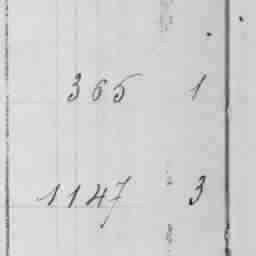 365 1
1147 3